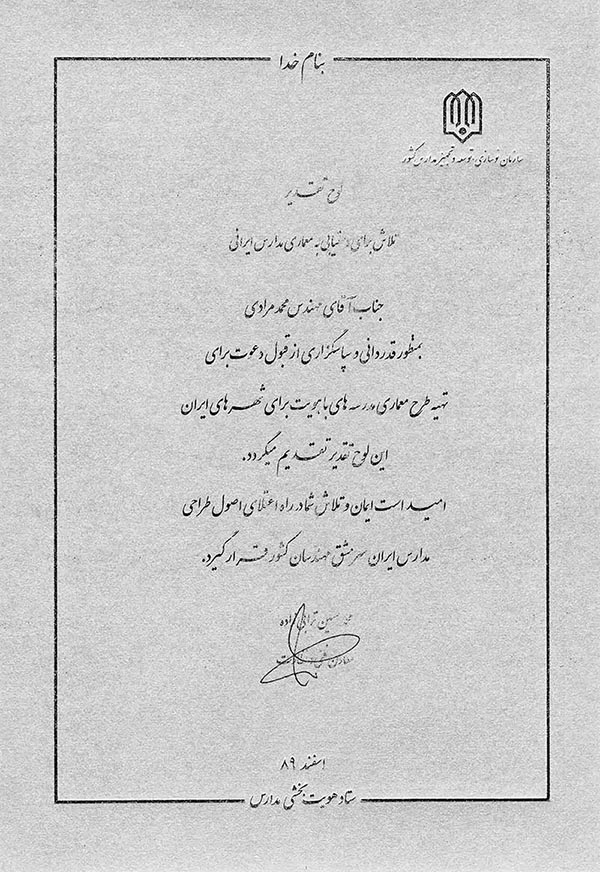 بنام خدا
سازمان نوسازی، توسعه و تجهیز مدارس کشور
لوح تقدیر
تلاش برای دستیابی به معماری مدارس ایرانی
جناب آقای مهندس محمد مرادی
بمنظور قدردانی و سپاسگزاری از قبول دعوت برای
تهیه طرح معماری مدرسه های با هویت برای شهرهای ایران
این لوح تقدیر تقدیم میگردد.
امید است ایمان و تلاش شما در راه اعتلای اصول طراحی
مدارس ایران سرمشق مهندسان کشور قرار گیرد.
محمد حسین ترابی زاده
معاون فنی
اسفند ۸۹
ستاد هویت بخشی مدارس